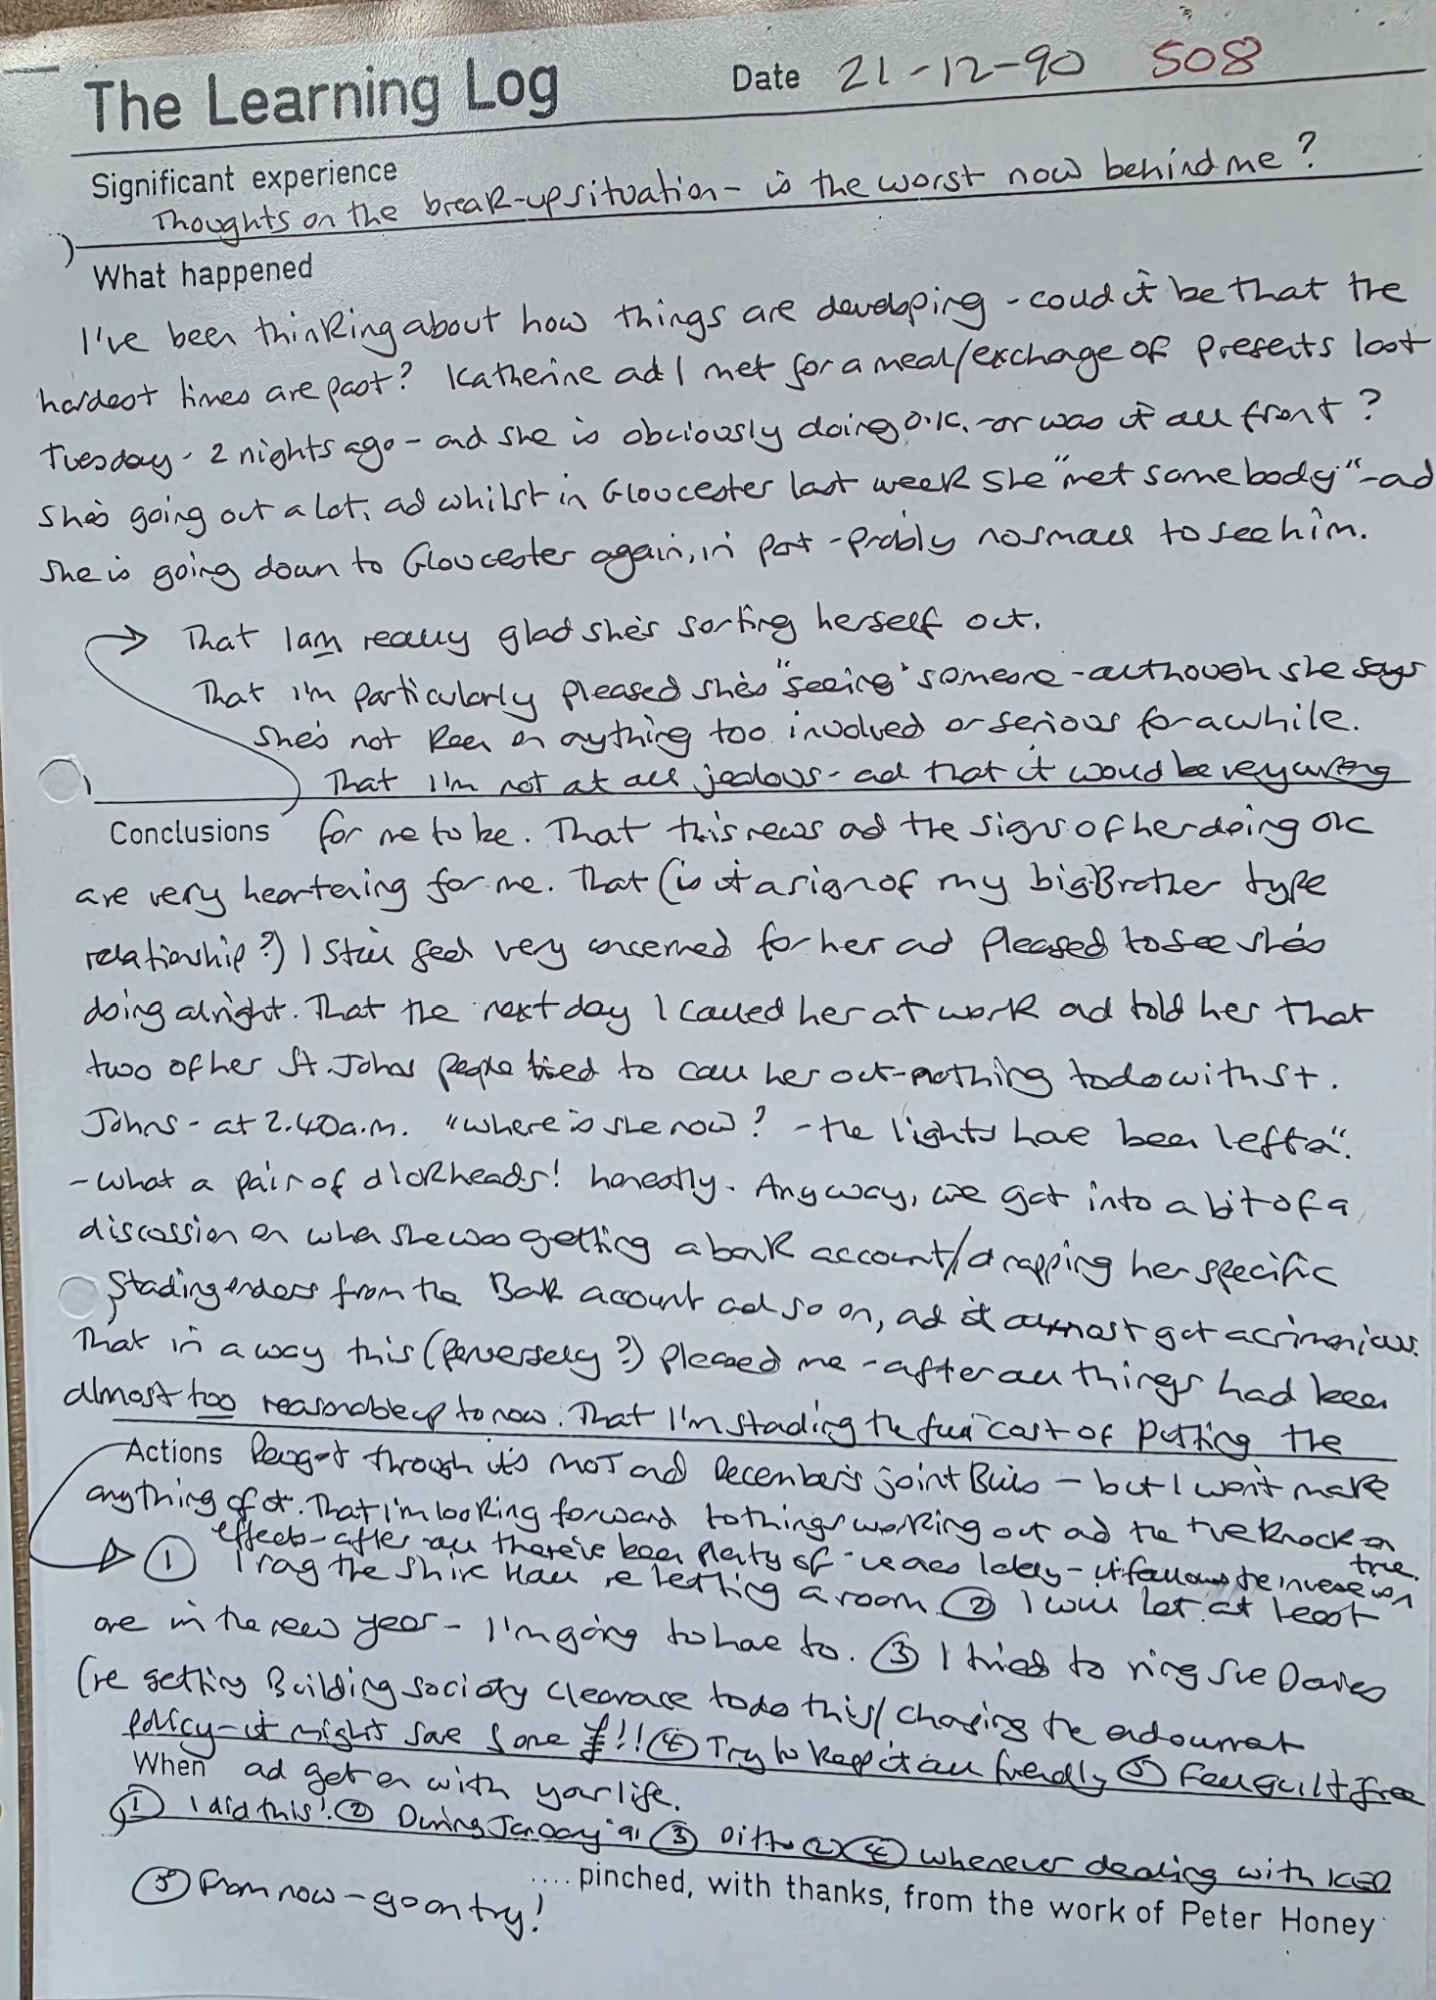 The Learning Log Date 21-12-90 508
Significant experience
Thoughts on the break-up situation - is the worst now behind me?
What happened
I've been thinking about how things are developing - could it be that the
hardest times are past? Katherine ad I met for a meal/exchage of presents last
Tuesday - 2 nights ago - and she is obviously doing o.k. - or was it all front?
She's going out a lot, ad whilst in Gloucester last week she "met somebody" - ad
she is going down to Gloucester again, in part - probly no small to see him.
That I am really glad she's sorting herself out.
That I'm particularly pleased she's "seeing" someone - although she says
she's not keen on anything too involved or serious for a while.
That I'm not at all jealous - ad that it would be very wrong
Conclusions for me to be. That this news ad the signs of her doing ok
are very heartening for me. That (is it a sign of my big Brother type
relationship?) I still feel very concerned for her ad pleased to see she's
doing alright. That the next day I called her at work ad told her that
two of her St. Johns people tried to call her out - nothing to do with St.
Johns - at 2.40a.m. "where is she now? - the lights have been left on".
- what a pair of dickheads! honestly. Anyway, we got into a bit of a
discussion on when she was getting a bank account/dropping her specific
Standing orders from the Bank account ad so on, ad it almost got acrimonious.
That in a way this (perversely?) pleased me - after all things had been
almost too reasonable up to now. That I'm standing the full cost of putting the
Actions Peugot through it's MOT and December's joint Bills - but I won't make
anything of it. That I'm looking forward to things working out ad the +ve knock-on
effects - after all there've been plenty of -ve ones lately - it follows the inverse is
true.
① I rang the Shire Hall re letting a room ② I will let at least
one in the new year - I'm going to have to. ③ I tried to ring Sue Davies
(re getting Building society clearance to do this/chasing the endowment
policy - it might save some £!! ④ Try to keep it all friendly ⑤ Feel guilt free
When ad get on with your life.
① I did this! ② During January '91 ③ Ditto ② ④ whenever dealing with KED
⑤ From now - go on try!
.... pinched, with thanks, from the work of Peter Honey